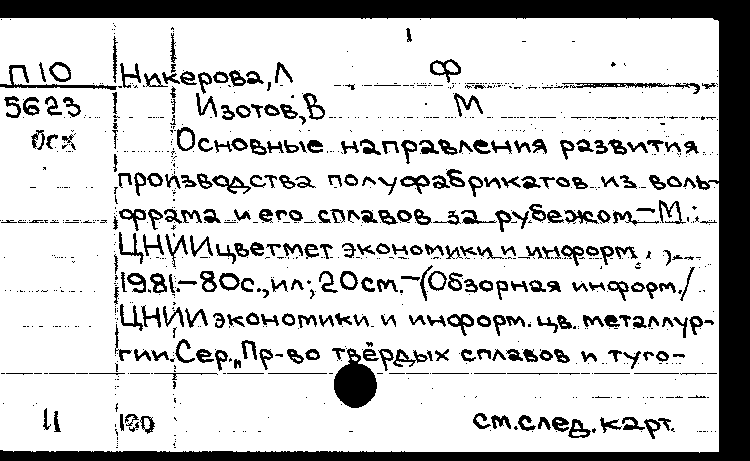 П10 Никерова, Л Ф
5623 Изотов, В М
Осх Основные направления развития
производства полуфабрикатов из воль-
фрама и его сплавов за рубежом.-М.:
ЦНИИцветмет экономики и информ.,
1981.-80с.,ил; 20см.-(Обзорная информ./
ЦНИИ экономики и информ. цв. металлур-
гии. Сер. „Пр-во твёрдых сплавов и туго-
11 100 см.след.карт.